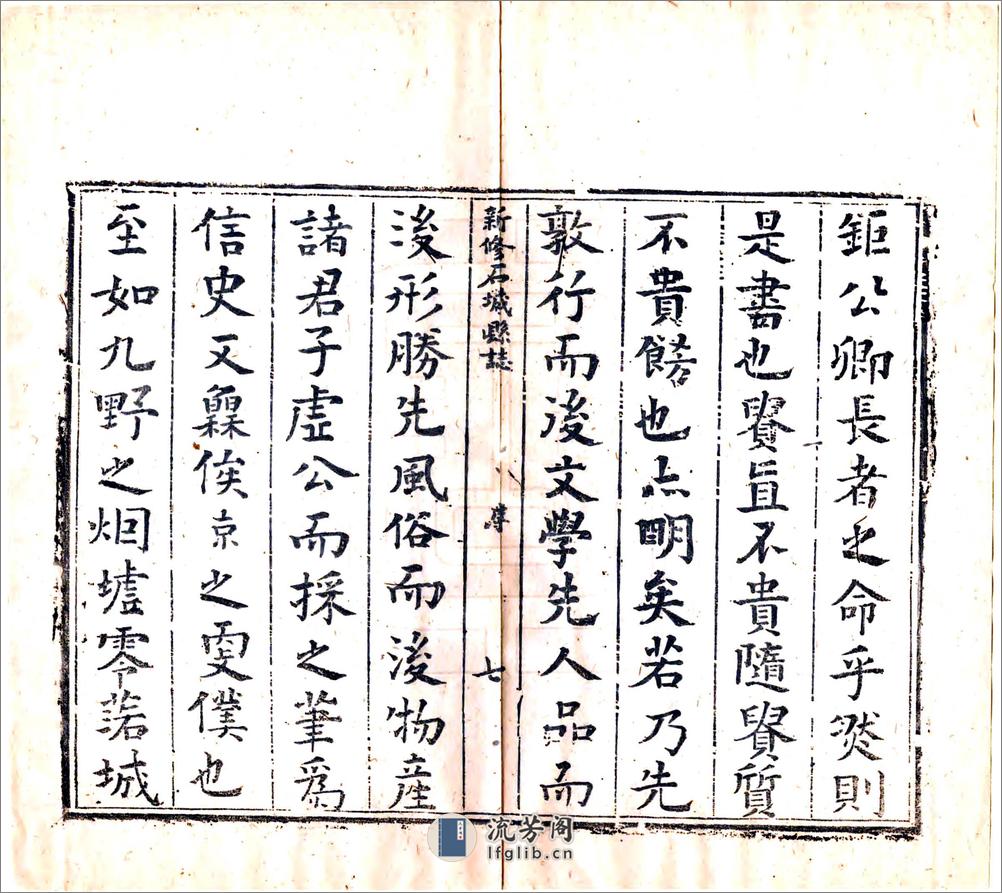 鉅公卿長者之命乎然則
是書也貴直不貴隨貴質
不貴餙也亦明矣若乃先
敦行而後文學先人品而
新修石城縣誌 序 七
後形勝先風俗而後物產
諸君子虛公而採之筆爲
信史又俟京之更僕也
至如九野之烟墟零落城
流芳阁
lfglib.cn